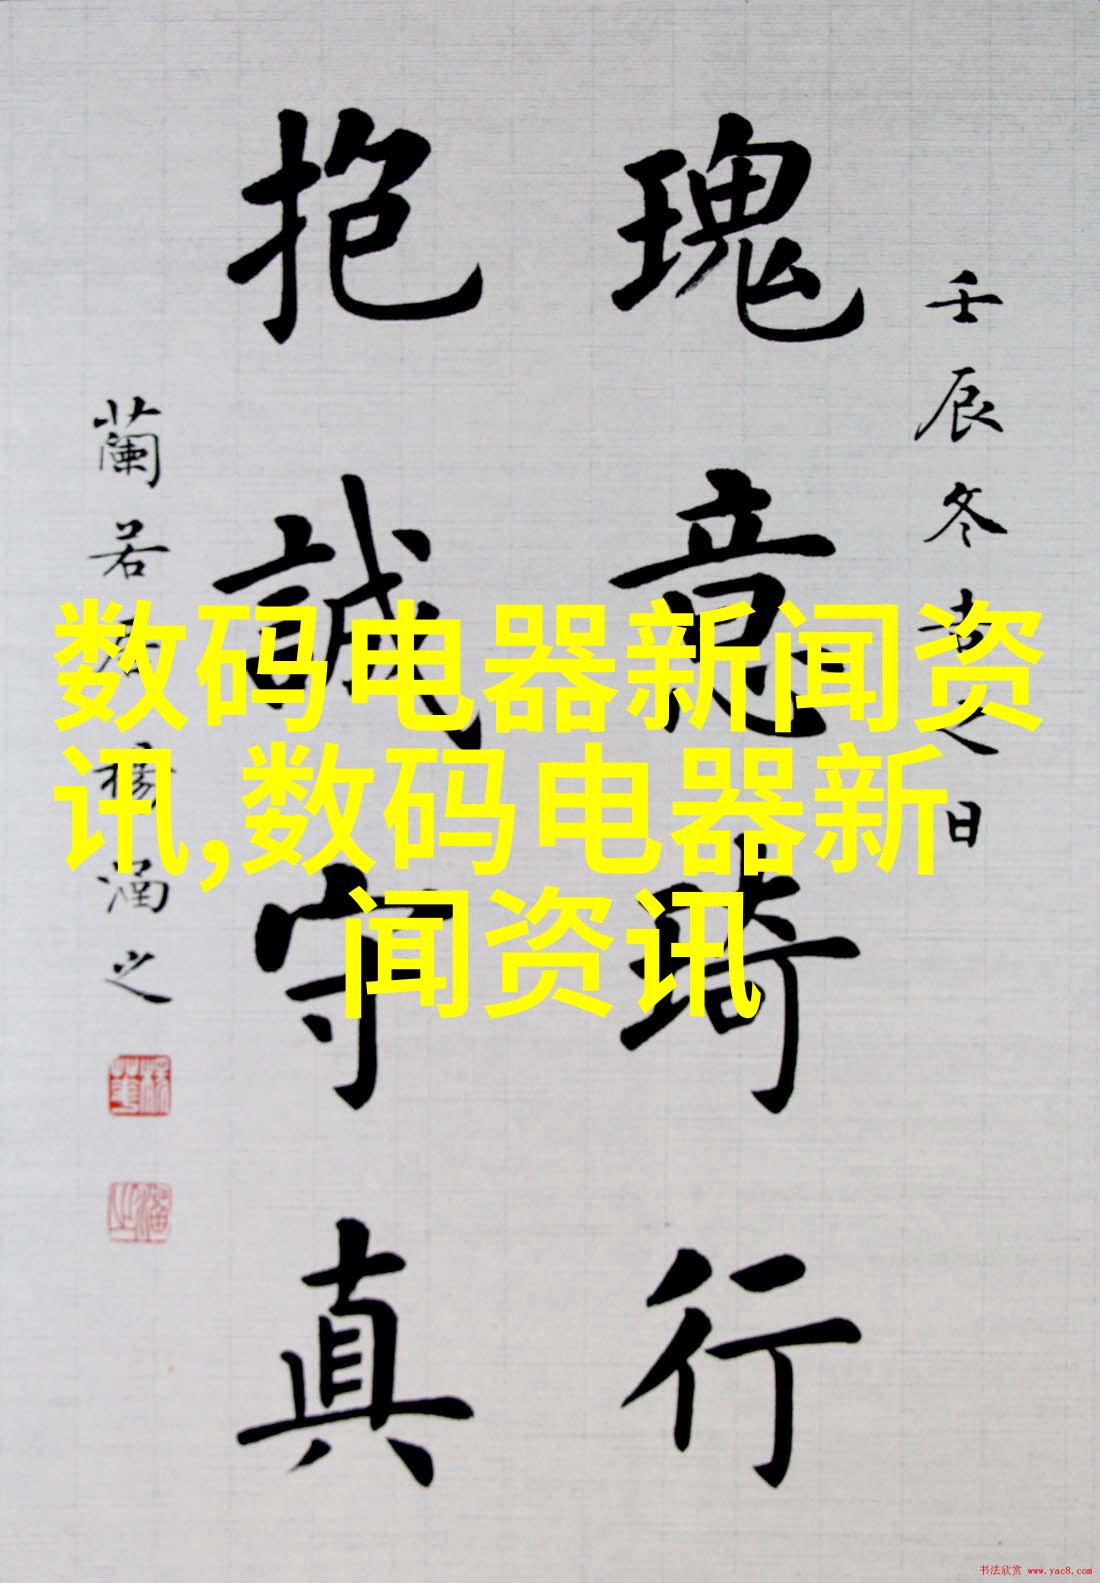 数码电器新闻资
讯,数码电器新
闻资讯
壬辰冬吉之日
瑰意琦行
抱誠守真
蘭若楊涵之
书法欣赏 www.yac8.com